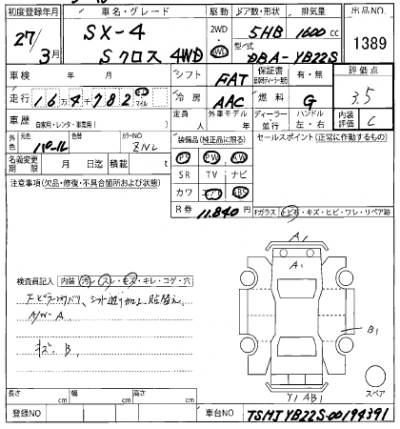 初度登録年月 車名・グレード 駆動 ドア数・形状 排気量 出品NO
27/3月 SX-4 Sクロス 4WD 2WD 4WD 5HB 1600cc 1389
型式 DBA-YB22S
車検 年 月 シフト FAT 保証書 有・無 評価点
走行 16万4782 マイル 冷房 AAC 燃料 G 3.5
車歴 自家用・レンタ・事業用( ) 定員 人 外車モデル 年 ディーラー 並行 ハンドル 左・右 内装評価 C
外色 元色 パール カラーNO ZNL 装備品(純正品に限る) セールスポイント(正常に作動するもの)
名義変更期限 月 日迄 積載 t PS PW AW
注意事項(欠品・修復・不具合箇所および状態) SR TV ナビ
カワ エアB ABS
R券 11,840円
Fガラス キズ・ヒビ・ワレ・リペア跡
A1
A1
検査員記入 内装 汚レ・スレ・キズ・キレ・コゲ・穴
A/W-A
キズ B
B1
スペア
Y1 AB1
長さ cm 幅 cm 高さ cm
登録NO 車台NO TSMJYB22S-00194391